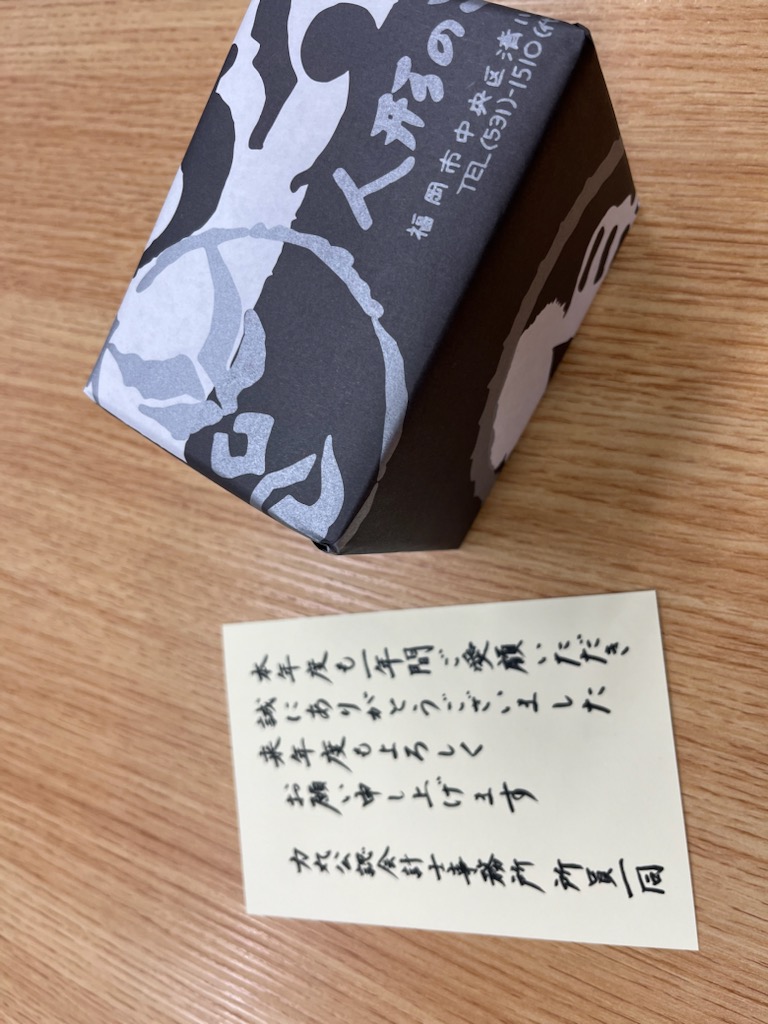 人形の
福岡市中央区清川
TEL(531)-1510(代
本年度も一年間ご愛顧いただき、
誠にありがとうございました
来年度もよろしく
お願い申し上げます
力丸公認会計士事務所 所員一同